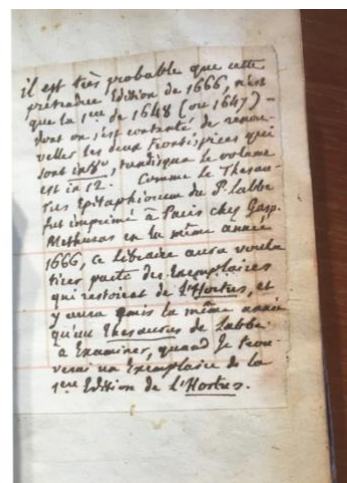 il est très probable que cette
prétendue Edition de 1666, n'est
que la 1ere de 1648 (ou 1647) –
dont on s'est contenté de renou-
veller les deux frontispices qui
sont in 8º, tandisque le volume
est in 12. Comme le Thesau-
rus Epitaphiorum du P. Labbe
fut imprimé à Paris chez Gasp.
Methuras en la même année
1666, ce libraire aura voulu
tirer parti des Exemplaires
qui restoient de l'Hortus, et
y aura mis la même année
qu'au Thesaurus de Labbe.
à Examiner, quand je trou-
verai un Exemplaire de la
1ere Edition de l'Hortus.